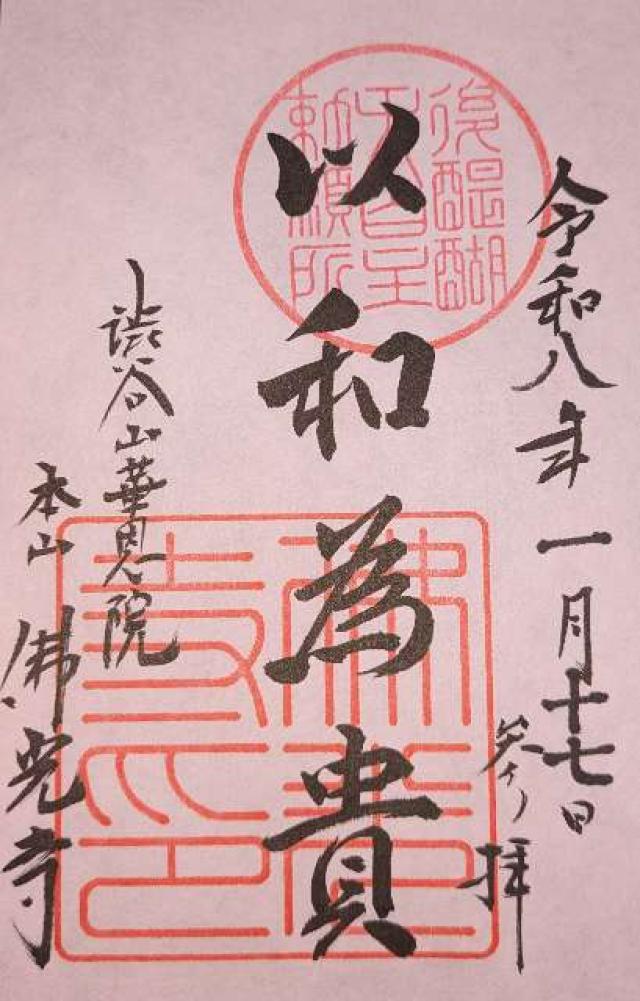 令和八年一月十七日
参拝
後醍醐
天皇
勅願所
以和為貴
佛光
寺印
渋谷山華恩院
本山 佛光寺